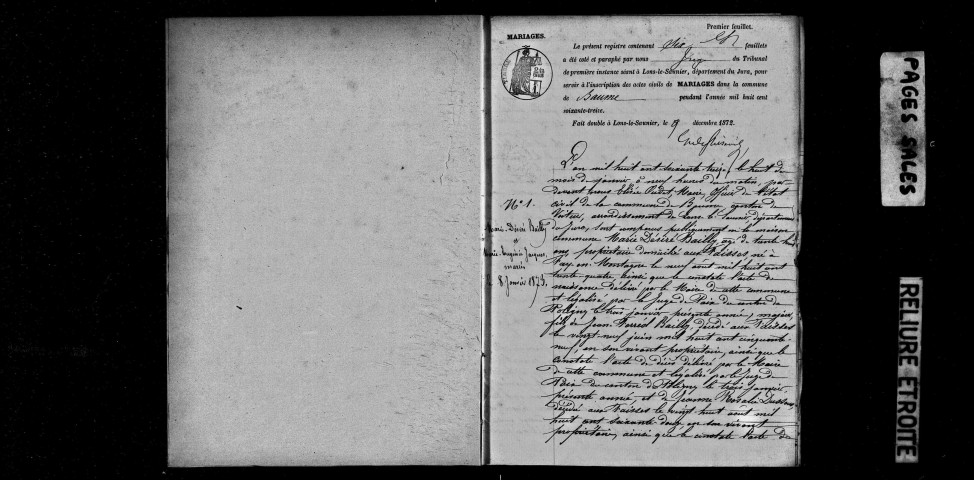 Premier feuillet.
MARIAGES.
Le présent registre contenant dix feuillets
a été coté et paraphé par nous Juge du Tribunal
de première instance séant à Lons-le-Saunier, département du Jura, pour
servir à l'inscription des actes civils de MARIAGES dans la commune
de Baume pendant l'année mil huit cent
soixante-treize.
Fait double à Lons-le-Saunier, le décembre 1872.
L'an mil huit cent soixante treize, le huit du
mois de janvier, à neuf heures du matin, par
devant nous Maire, Officier de l'état
civil de la commune de Baume canton de
Voiteur, arrondissement de Lons le Saunier, département
du Jura, sont comparus publiquement en la maison
commune Marie Désiré Bailly, âgé de trente huit
ans, propriétaire domicilié aux Faisses né à
Fay en Montagne le neuf août mil huit cent
trente quatre ainsi que le constate l'acte de
naissance délivré par le Maire de cette commune
et légalisé par le Juge de Paix du canton de
Poligny le trois janvier présente année, majeur,
fils de Jean Bailly, décédé aux Faisses
le vingt-neuf juin mil huit cent cinquante
neuf, en son vivant propriétaire, ainsi que le
constate l'acte de décès délivré par le Maire
de cette commune et légalisé par le Juge de
Paix du canton de Poligny le trois janvier
présente année, et de Jeanne Rosalie
décédée aux Faisses le vingt huit août mil
huit cent soixante deux en son vivant
propriétaire, ainsi que le constate l'acte de
N° 1.
Marie-Désiré Bailly
et
Marie-Eugénie Jacques
mariés
8 Janvier 1873.
PAGES SALES
RELIURE ETROITE